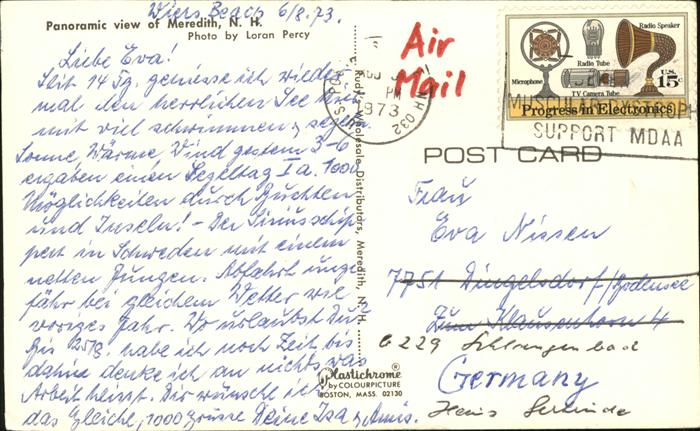 Panoramic view of Meredith, N. H.
Photo by Loran Percy
Wiers Beach 6/8.73.
Liebe Eva!
Seit 14 Tg. geniesse ich wieder
mal den herrlichen See hier
mit viel schwimmen, segeln
Sonne, Wärme, Wind gestern 3-6
ergaben einen Segeltag Ia. 1000
Möglichkeiten durch Buchten
und Inseln! - Der
in Schweden mit einem
netten Jungen. Abfahrt unge-
fähr bei gleichem Wetter wie
voriges Jahr. Wo urlaubst Du?
Bis 25/8. habe ich noch Zeit, bis
dahin denke ich an nichts was
Arbeit heisst. Dir wünsche ich
das Gleiche, 1000 Grüsse Deine Isa
Rudy's Wholesale Distributors, Meredith, N. H.
Plastichrome®
by COLOURPICTURE
BOSTON, MASS. 02130
Air
Mail
PM
1973
NH 032
Radio Speaker
Radio Tube
Microphone
TV Camera Tube
U.S.
15c
Progress in Electronics
SUPPORT MDAA
POST CARD
Frau
Eva Nissen
7751 Dingelsdorf/Bodensee
Zum Klausenhorn 4
6229 Schlangenbad
Germany
Haus